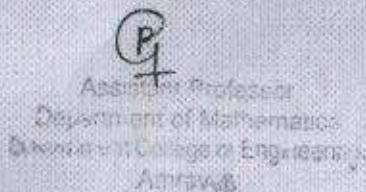 P
Assistant Professor
Department of Mathematics
Government College of Engineering
Amravati